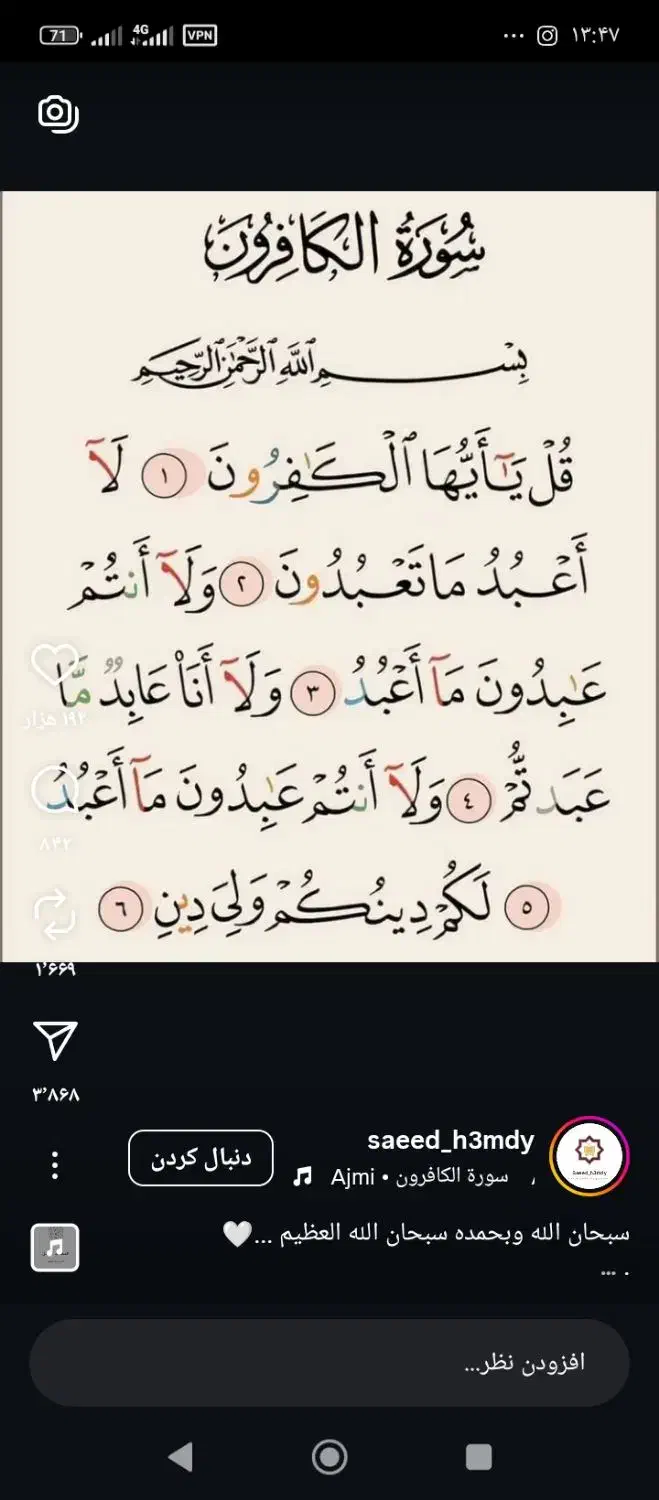 71 4G VPN ... ۱۳:۴۷
سُورَةُ الكَافِرُونَ
بِسْمِ ٱللَّهِ ٱلرَّحْمَٰنِ ٱلرَّحِيمِ
قُلْ يَٰٓأَيُّهَا ٱلْكَٰفِرُونَ ١ لَآ
أَعْبُدُ مَا تَعْبُدُونَ ٢ وَلَآ أَنتُمْ
عَٰبِدُونَ مَآ أَعْبُدُ ٣ وَلَآ أَنَا۠ عَابِدٌ مَّا
عَبَدتُّمْ ٤ وَلَآ أَنتُمْ عَٰبِدُونَ مَآ أَعْبُدُ
٥ لَكُمْ دِينُكُمْ وَلِىَ دِينِ ٦
۱۹۲ هزار
۸۴۲
۱٬۶۶۹
۳٬۸۶۸
saeed_h3mdy
دنبال کردن
سورة الكافرون • Ajmi
سبحان الله وبحمده سبحان الله العظيم ...🤍
. ...
افزودن نظر...